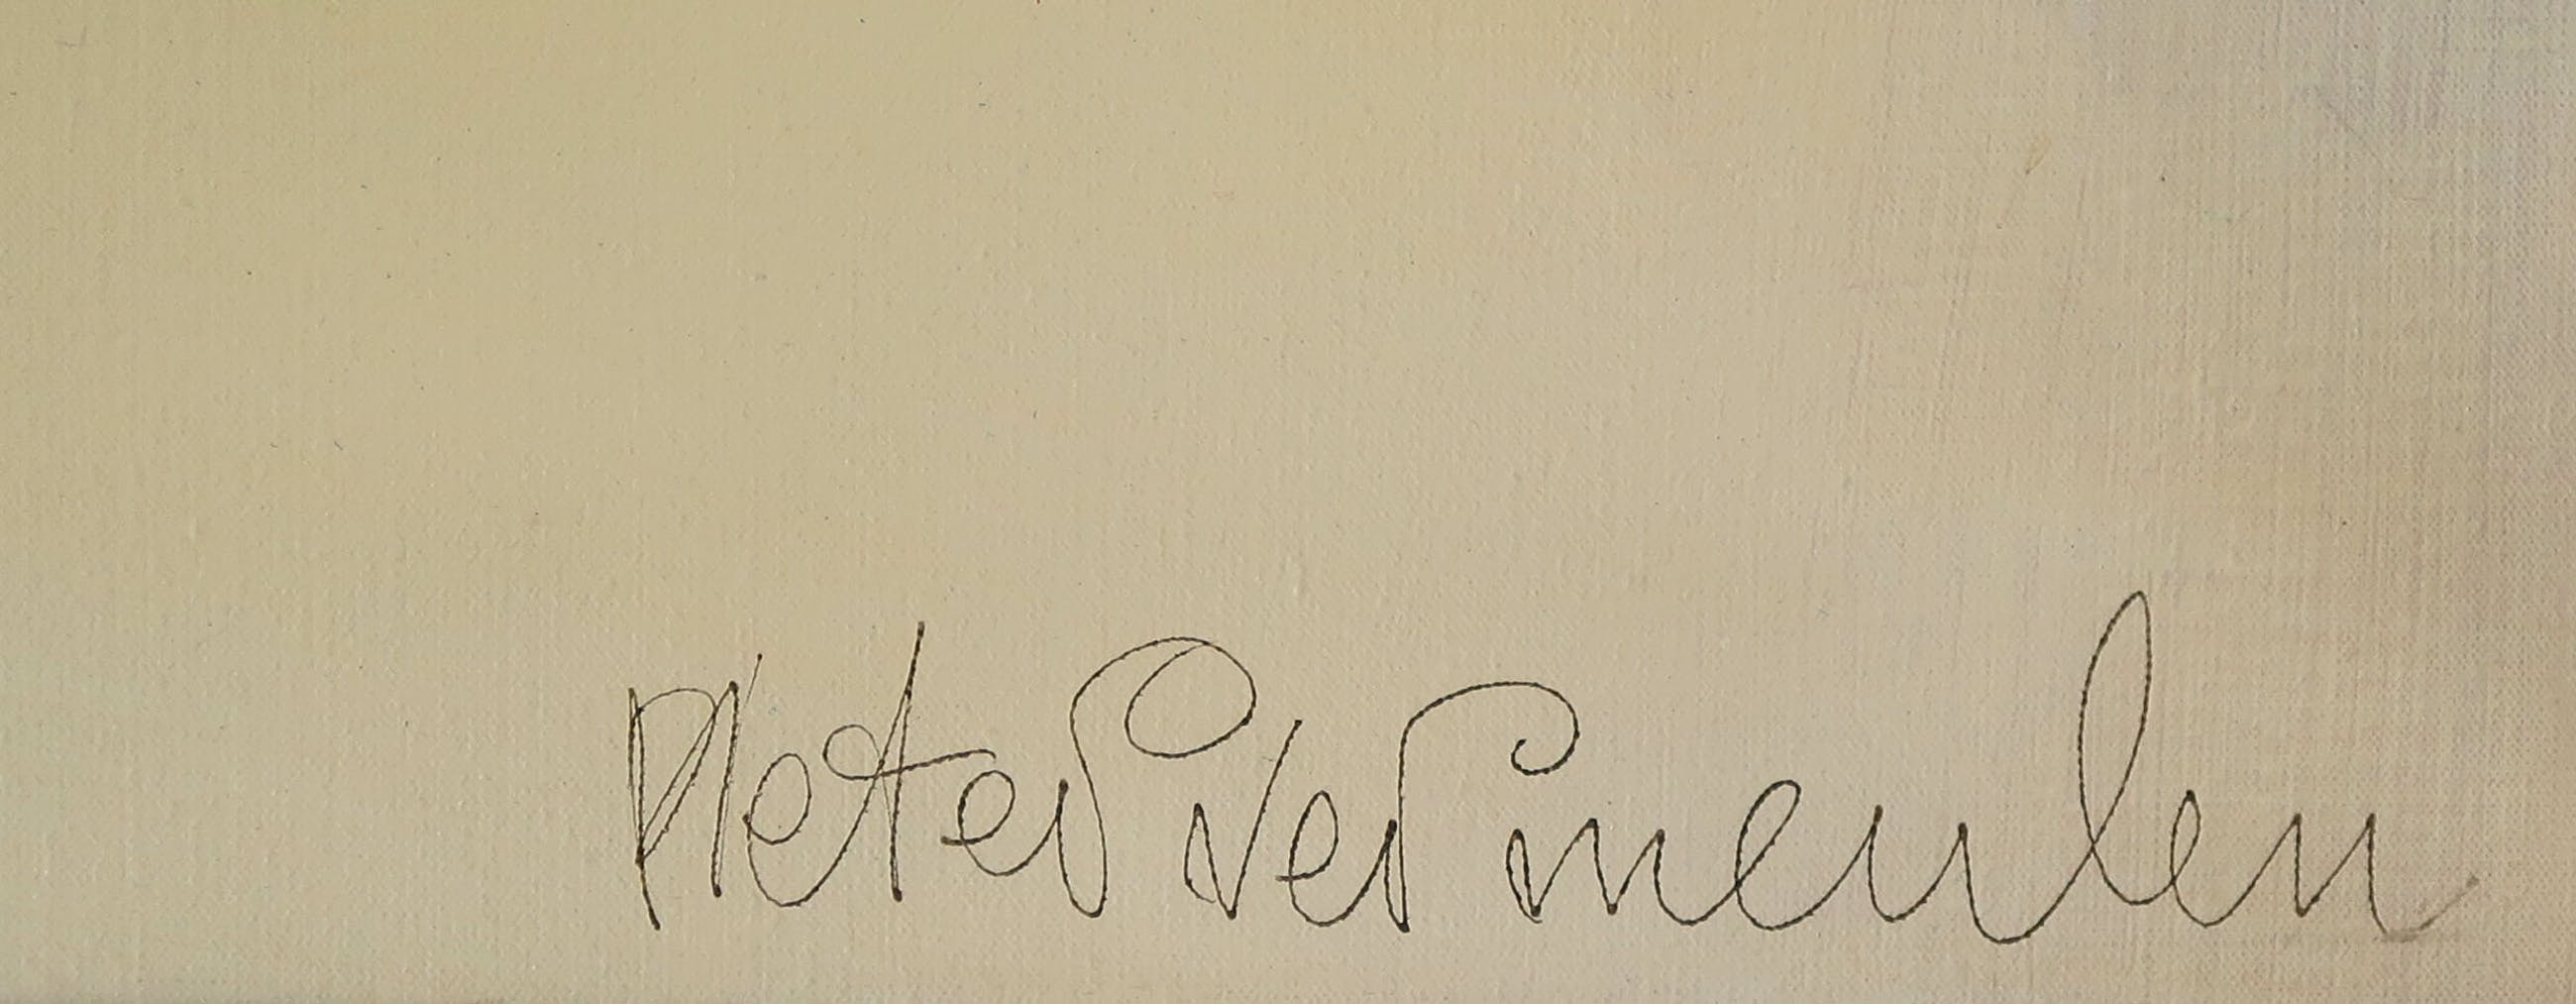 Pieter Vermeulen